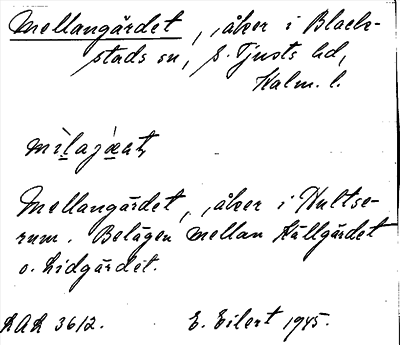 Mellangärdet, åker i Black-
stads sn, S. Tjusts hd,
Kalm. l.
mìlajæ̀ət
Mellangärdet, åker i Hultse-
rum. Belägen mellan Källgärdet
o. Lidgärdet.
LAL 3612. E. Eilert 1945.